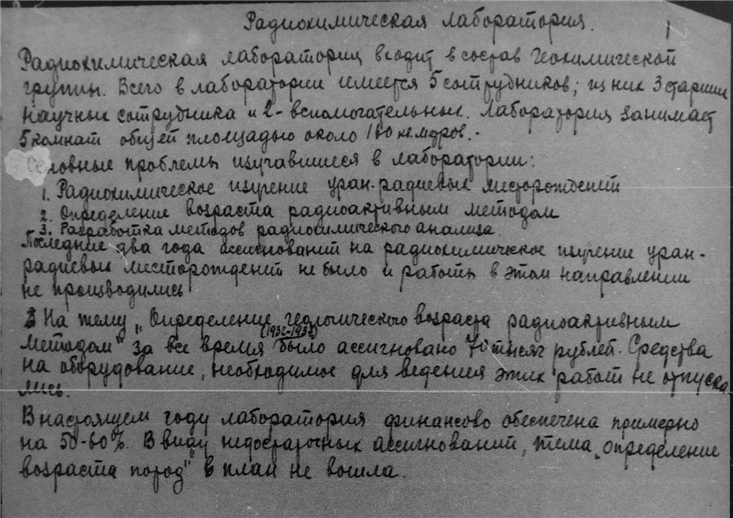 Радиохимическая лаборатория.
1
Радиохимическая лаборатория входит в состав Геохимической
группы. Всего в лаборатории имеется 5 сотрудников; из них 3 старших
научных сотрудника и 2 - вспомогательных. Лаборатория занимает
5 комнат общей площадью около 180 кв. метров. -
Основные проблемы изучавшиеся в лаборатории:
1. Радиохимическое изучение уран-радиевых месторождений
2. Определение возраста радиоактивным методом
3. Разработка методов радиохимического анализа.
Последние два года ассигнований на радиохимическое изучение уран-
радиевых месторождений не было и работы в этом направлении
не производились
На тему „Определение геологического возраста радиоактивным
методом" за все время было ассигновано тысяч рублей. Средства
на оборудование, необходимое для ведения этих работ не отпуска
лись.
В настоящем году лаборатория финансово обеспечена примерно
на 50-60%. В виду недостаточных ассигнований, тема „определение
возраста пород" в план не вошла.